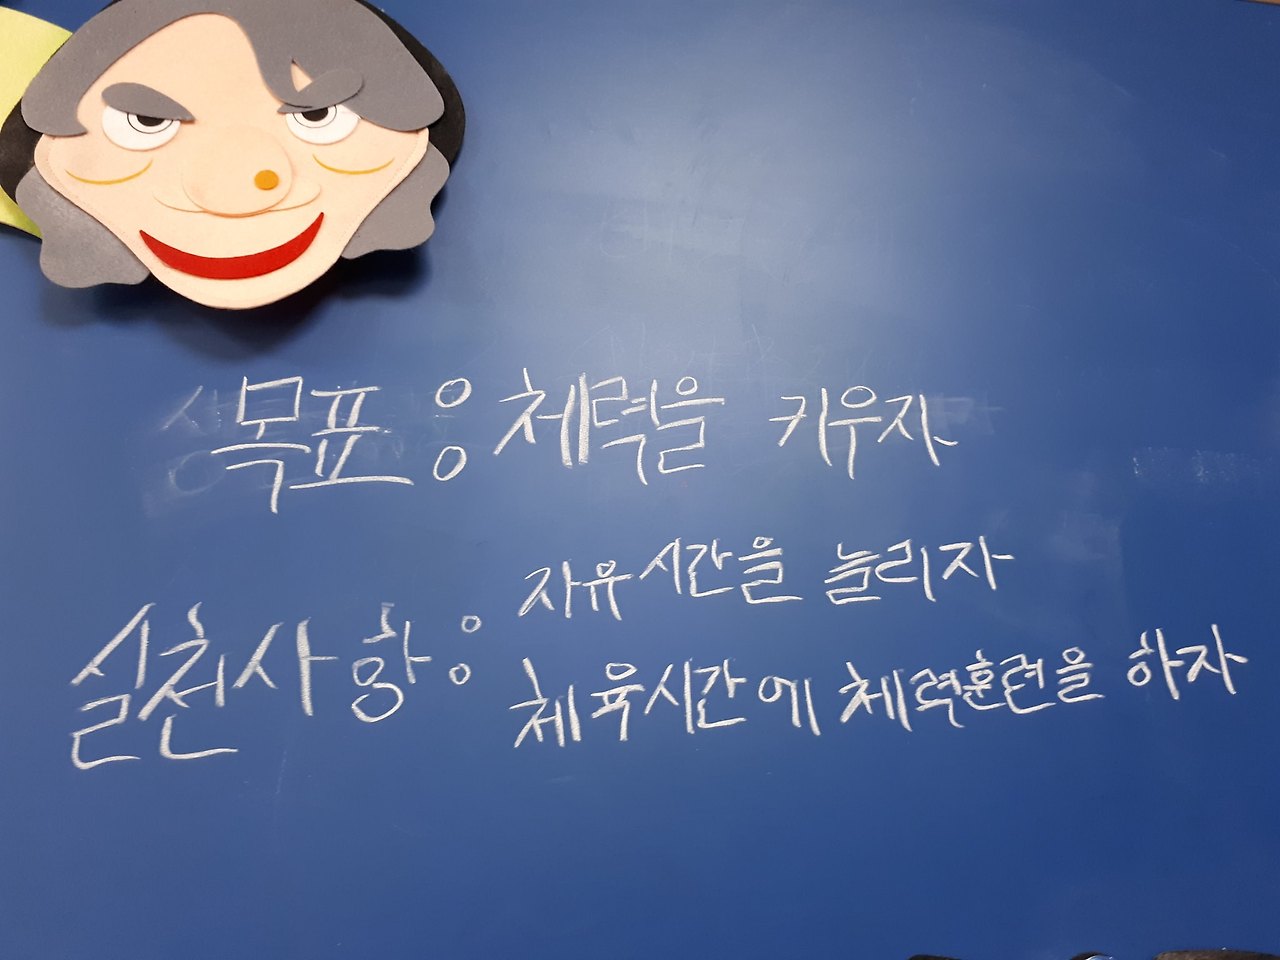 목표: 체력을 키우자
실천사항: 자유시간을 늘리자
체육시간에 체력훈련을 하자